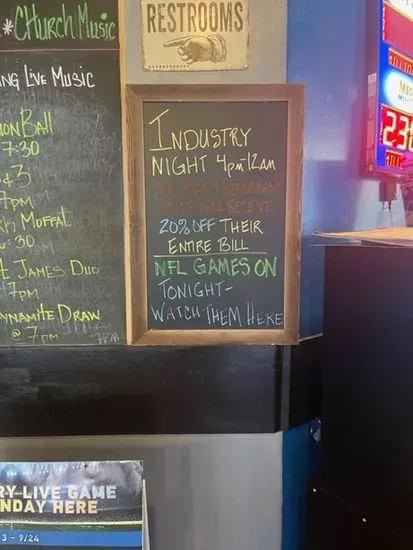 *CHURCH MUSIC
ING LIVE MUSIC
ON BALL
7:30
& 3
7PM
RH MOFFAT
6:30
T JAMES DUO
7PM
DYNAMITE DRAW
@ 7PM
RESTROOMS
INDUSTRY
NIGHT 4PM-12AM
WILL RECEIVE
20% OFF THEIR
ENTIRE BILL
NFL GAMES ON
TONIGHT-
WATCH THEM HERE
MEGA
RY LIVE GAME
NDAY HERE
3 - 9/24